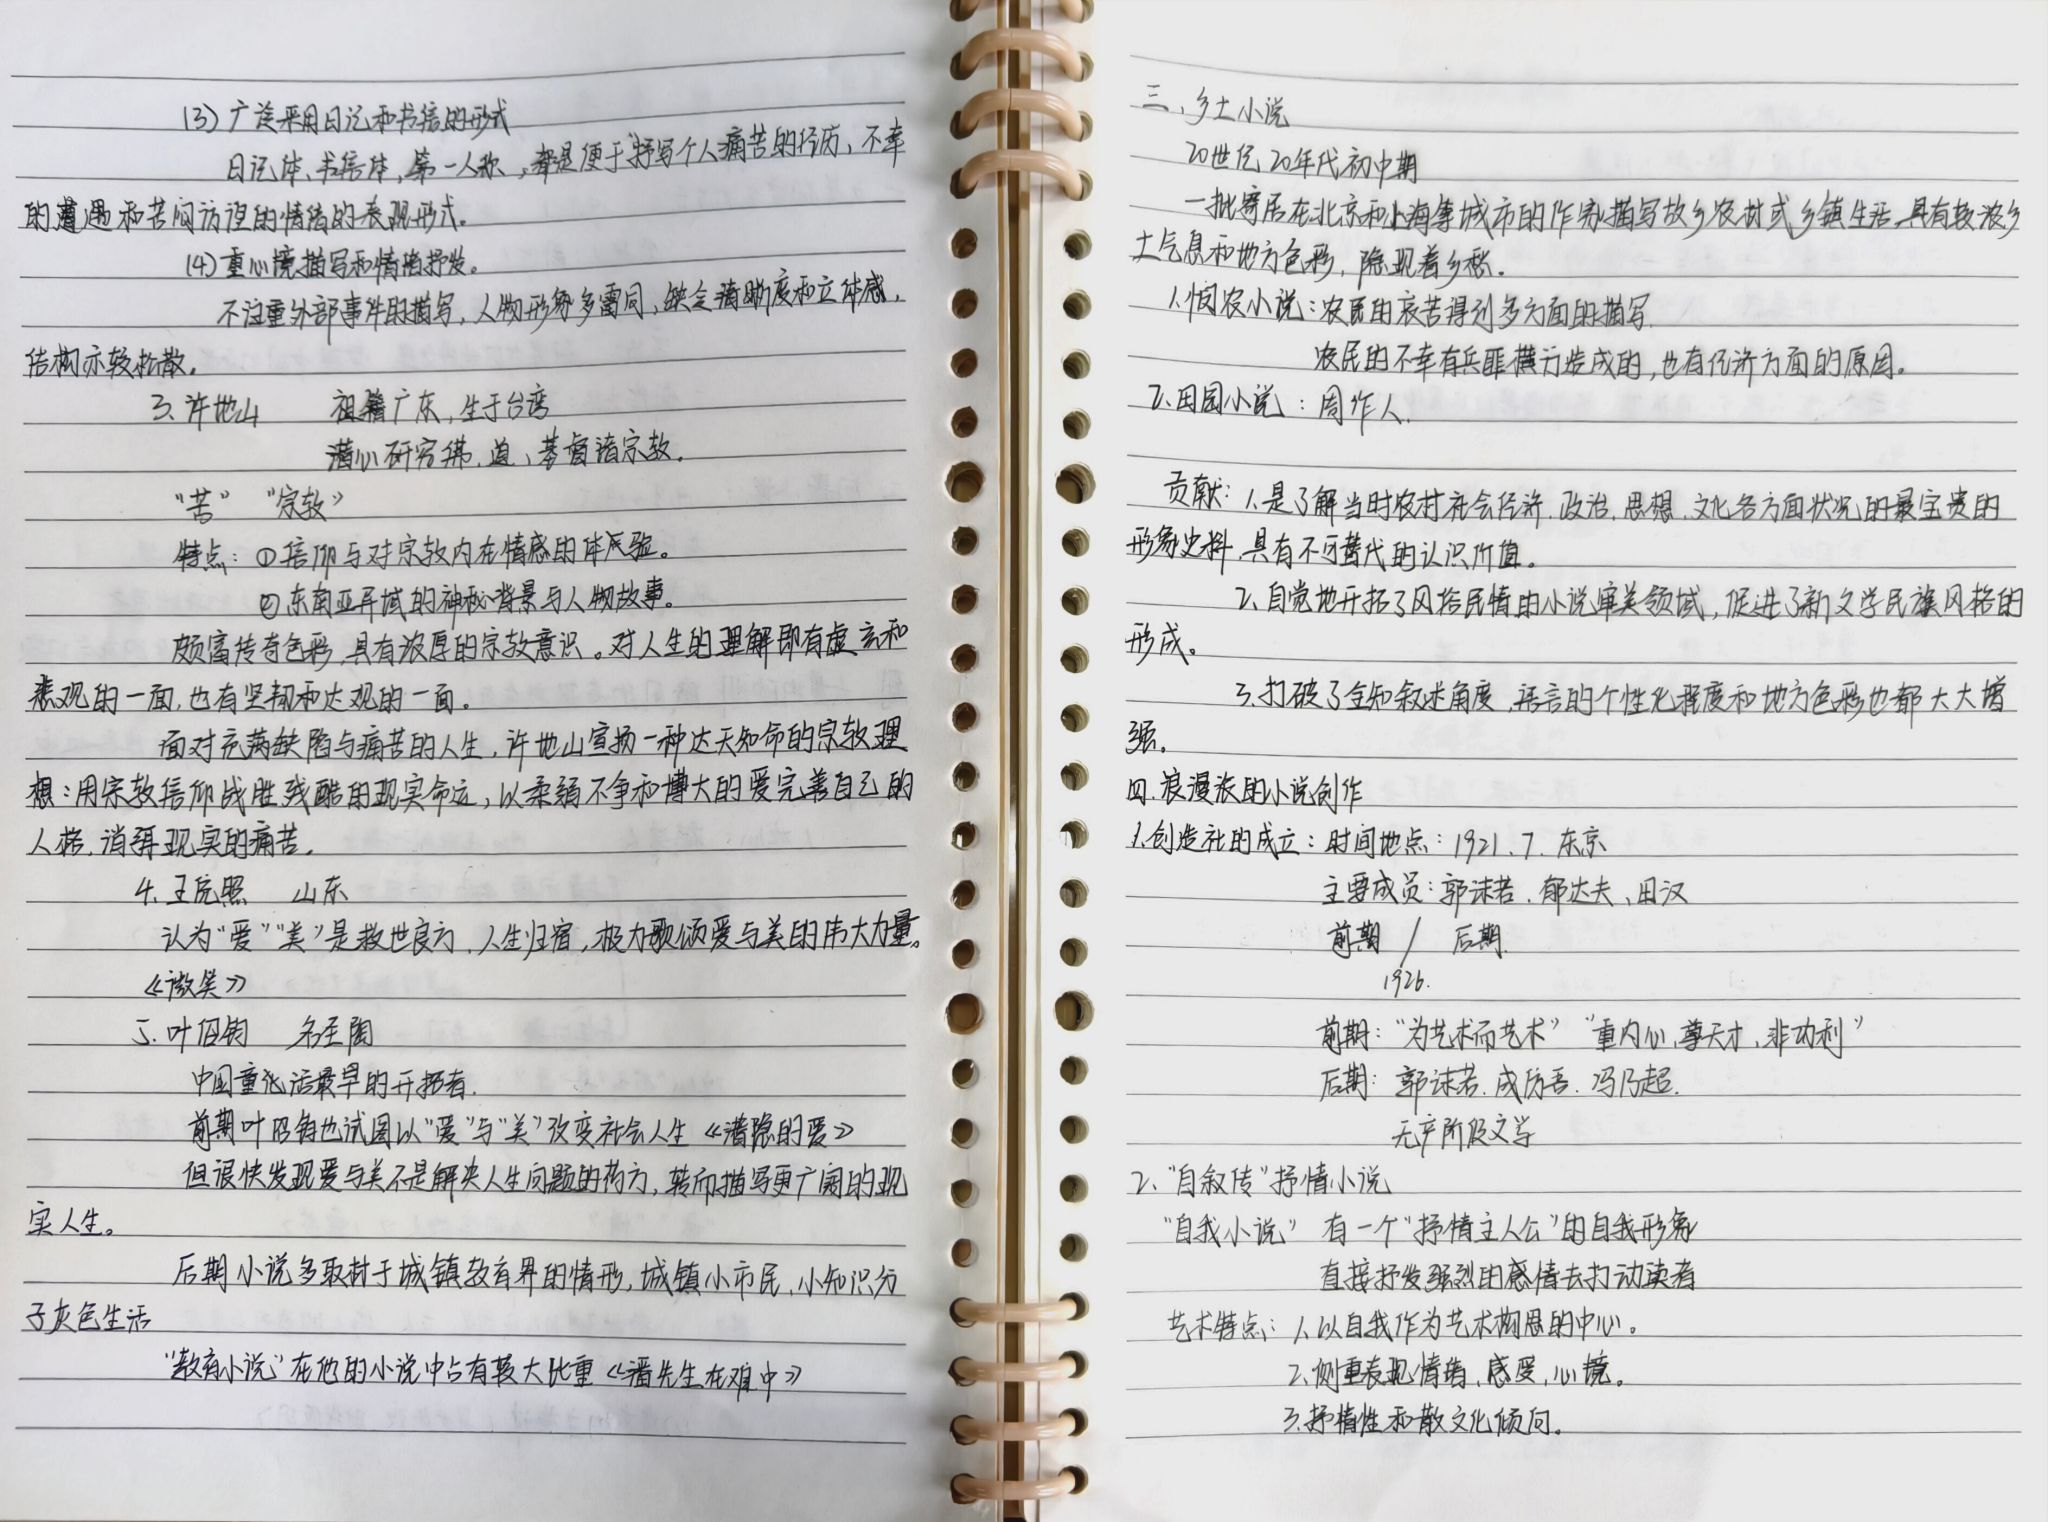 (3) 广泛采用日记和书信的形式
日记体、书信体，第一人称，都是便于抒写个人痛苦的经历、不幸
的遭遇和苦闷彷徨的情绪的表现形式。
(4) 重心境描写和情绪抒发。
不注重外部事件的描写，人物形象多雷同，缺乏清晰度和立体感，
结构亦较松散。
3、许地山 祖籍广东，生于台湾
潜心研究佛、道、基督诸宗教。
“苦” “宗教”
特点：①信仰与对宗教内在情感的体验。
②东南亚异域的神秘背景与人物故事。
颇富传奇色彩，具有浓厚的宗教意识。对人生的理解即有虚玄和
悲观的一面，也有坚韧和达观的一面。
面对充满缺陷与痛苦的人生，许地山宣扬一种达天知命的宗教理
想：用宗教信仰战胜残酷的现实命运，以柔弱不争和博大的爱完善自己的
人格，消弭现实的痛苦。
4、王统照 山东
认为“爱”“美”是救世良方，人生归宿，极力歌颂爱与美的伟大力量。
《微笑》
5、叶绍钧 名圣陶
中国童化话最早的开拓者.
前期叶绍钧也试图以“爱”与“美”改变社会人生《潜隐的爱》
但很快发现爱与美不是解决人生问题的药方，转而描写更广阔的现
实人生。
后期小说多取材于城镇教育界的情形，城镇小市民、小知识分
子灰色生活
“教育小说”在他的小说中占有较大比重《潘先生在难中》
三、乡土小说
20世纪20年代初中期
一批寄居在北京和上海等城市的作家描写故乡农村或乡镇生活，具有较浓乡
土气息和地方色彩，隐现着乡愁。
1.悯农小说：农民的哀苦得到多方面的描写.
农民的不幸有兵匪横行造成的，也有经济方面的原因。
2.田园小说：周作人.
贡献：1.是了解当时农村社会经济、政治、思想、文化各方面状况的最宝贵的
形象史料，具有不可替代的认识价值。
2、自觉地开拓了风格民情的小说审美领域，促进了新文学民族风格的
形成。
3.打破了全知叙述角度，语言的个性化程度和地方色彩也都大大增
强。
四.浪漫派的小说创作
1.创造社的成立：时间地点：1921.7. 东京
主要成员：郭沫若、郁达夫、田汉
前期 / 后期.
1926.
前期：“为艺术而艺术” “重内心，尊天才，非功利”
后期：郭沫若.成仿吾.冯乃超.
无产阶级文学
2、“自叙传”抒情小说
“自我小说” 有一个“抒情主人公”的自我形象
直接抒发强烈的感情去打动读者
艺术特点：1.以自我作为艺术构思的中心。
2.侧重表现情绪，感受，心境。
3.抒情性和散文化倾向。